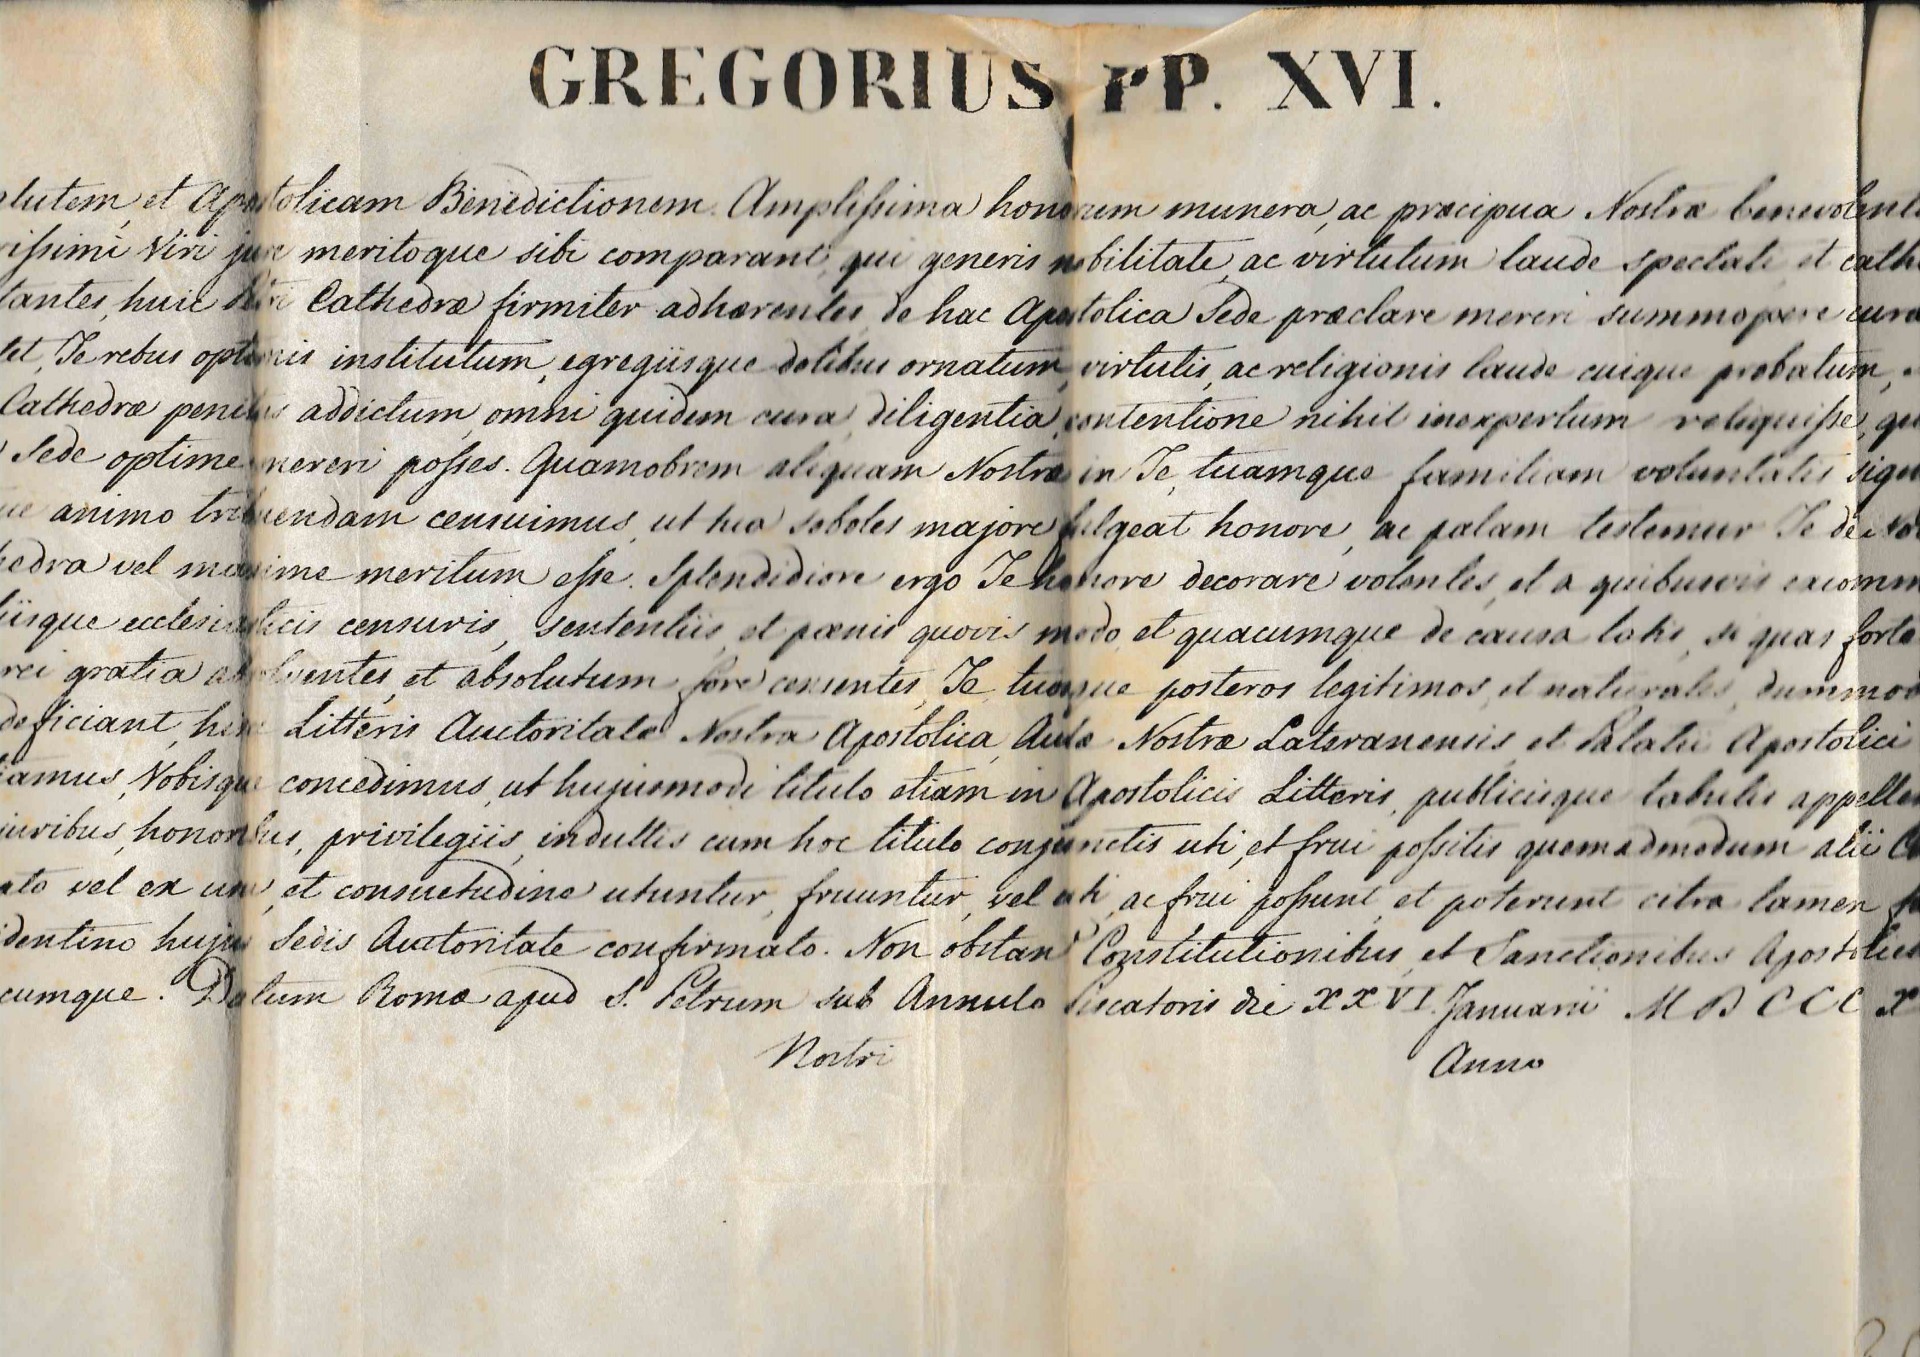 GREGORIUS PP. XVI.
lutem, et Apostolicam Benedictionem. Amplissima honorum munera, ac præcipua Nostræ benevolent
rissimi Viri jure meritoque sibi comparant, qui generis nobilitate, ac virtutum laude spectati, et cath
tantes, huic Cathedræ firmiter adhærentes, de hac Apostolica Sede præclare mereri summopere cura
tet, Te rebus optimis institutum, egregiisque dotibus ornatum, virtutis, ac religionis laude cuique probatum,
Cathedræ penitus addictum, omni quidem cura, diligentia, contentione nihil inexpertum reliquisse, qu
Sede optime mereri posses. Quamobrem aliquam Nostræ in Te, tuamque familiam voluntatis sign
ue animo tribuendam censuimus, ut tua soboles majore fulgeat honore, ac palam testemur Te de
hedra vel maxime meritum esse. Splendidiore ergo Te honore decorare volentes, et a quibusvis excomm
iisque ecclesiasticis censuris, sententiis, et pœnis quovis modo, et quacumque de causa latis, si quas forte
rei gratia absolventes, et absolutum fore censentes, Te, tuosque posteros legitimos, et naturales, dummod
deficiant, hisce Litteris Auctoritate Nostra Apostolica, Aulæ Nostræ Lateranensis, et Palatii Apostolici
iamus, Nobisque concedimus, ut hujusmodi titulo etiam in Apostolicis Litteris, publicisque tabulis appella
juribus, honoribus, privilegiis, indultis cum hoc titulo conjunctis uti, et frui possitis quemadmodum alii Co
ato vel ex usu, et consuetudine utuntur, fruuntur, vel uti, ac frui possunt, et poterunt citra tamen
dentino hujus Sedis Auctoritate confirmato. Non obstan Constitutionibus, et Sanctionibus Apostolici
cumque. Datum Romæ apud S. Petrum sub Annulo Piscatoris die XXVI. Januarii MDCCCX
Nostri Anno